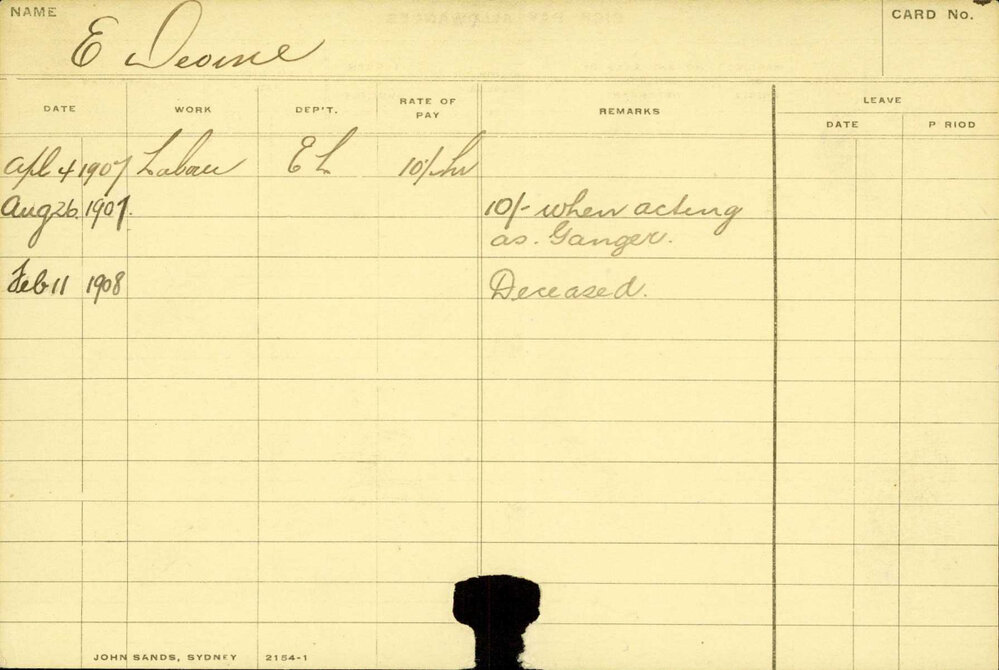 NAME
E Deorne
CARD No.
DATE WORK DEP'T. RATE OF PAY REMARKS LEAVE
DATE P RIOD
Apl 4 1907 Labau E L 10/-hr
Aug 26. 1907. 10/- when acting
as. Ganger.
Feb 11 1908 Deceased.
JOHN SANDS, SYDNEY 2154-1